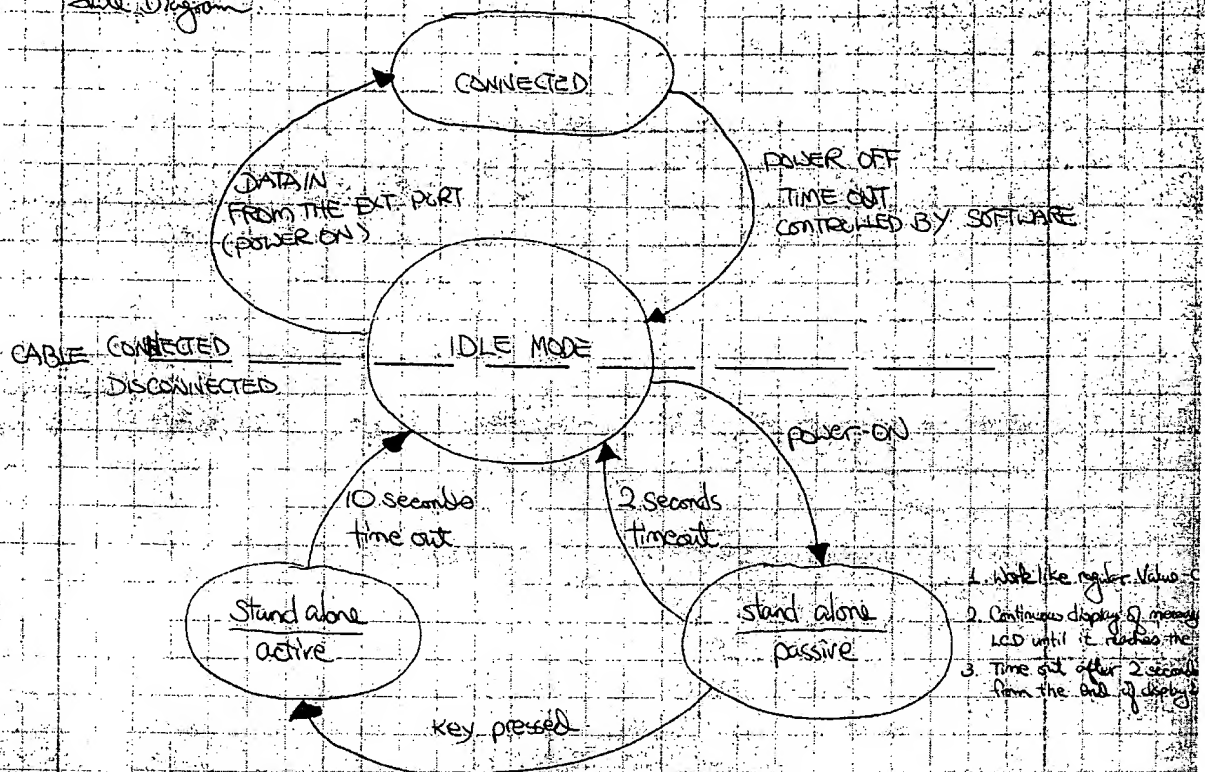 State Diagram.
CONNECTED
DATA IN
FROM THE EXT PORT
(POWER ON)
POWER OFF
TIME OUT
CONTROLLED BY SOFTWARE
CABLE CONNECTED
DISCONNECTED
IDLE MODE
power-ON
10 seconds
time out
2 seconds
timeout
Stand alone
active
stand alone
passive
1. Work like regular Value-C
2. Continuous display of
LCD until it reaches the
3. Time out after 2 second
from the end of display
key pressed